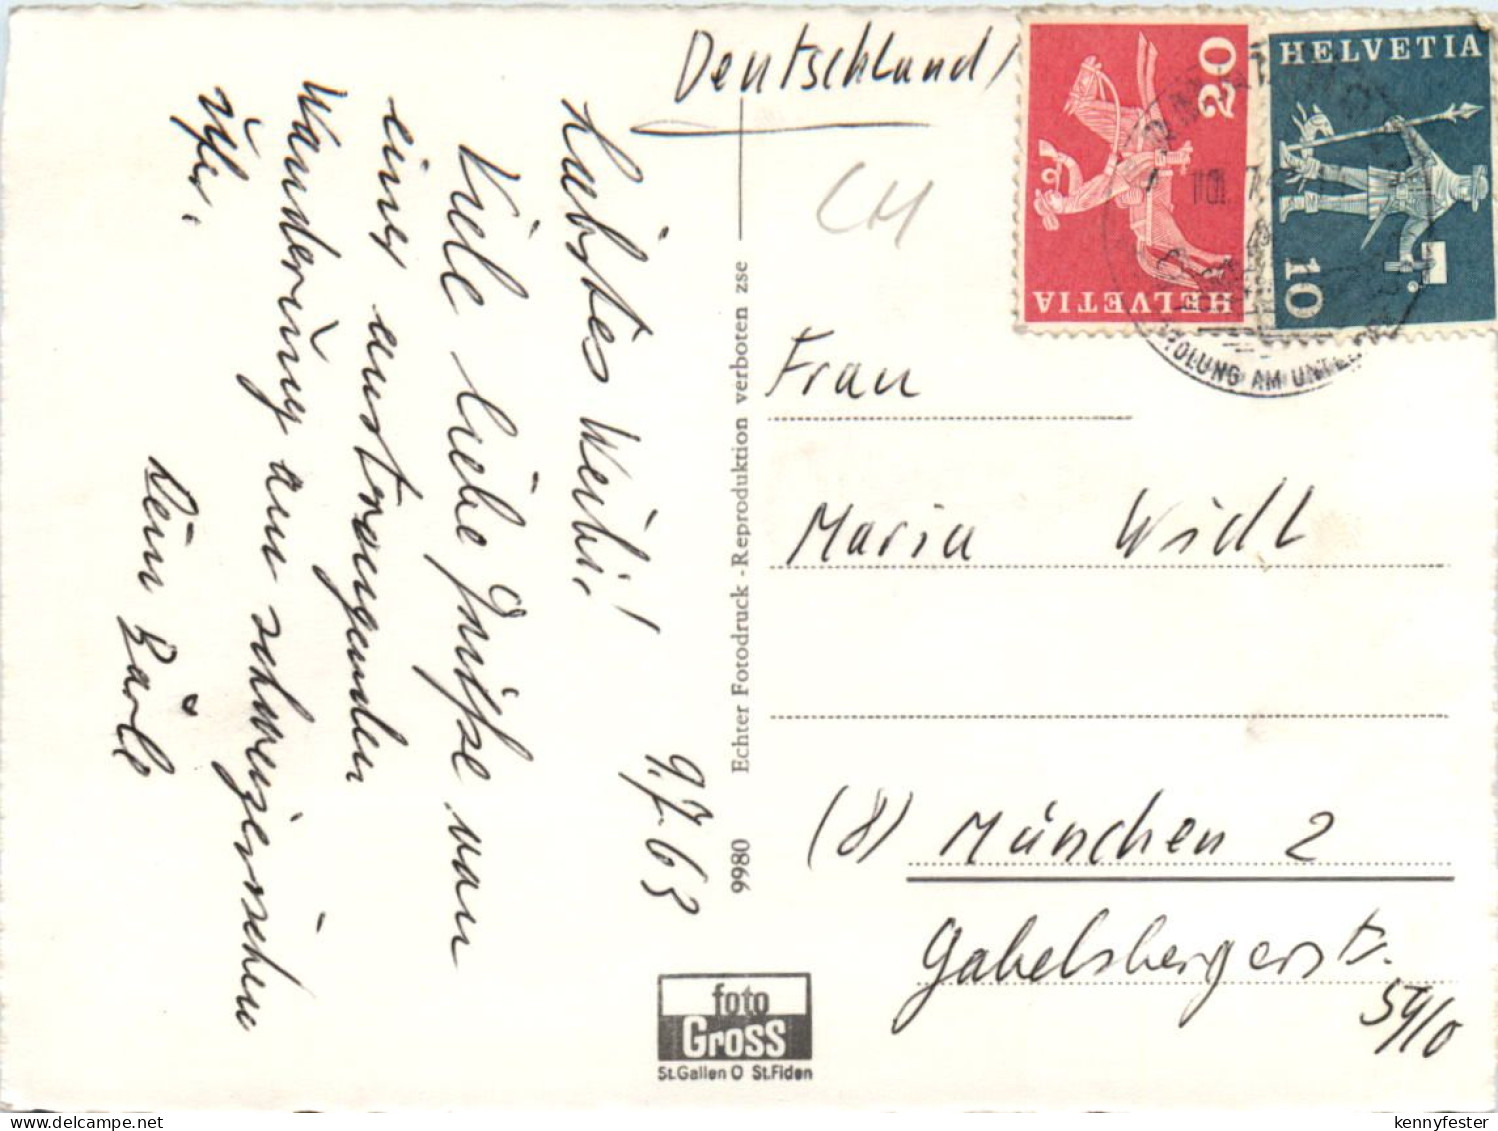 Deutschland!
HELVETIA
20
HELVETIA
10
10. 7.
CH
Liebstes Weibi!
9.7.63
Viele liebe Grüße von
einer anstrengenden
Wanderung am schweizerischen
Ufer.
Dein Bärle
Echter Fotodruck - Reproduktion verboten zse
9980
Frau
Maria Widl
(8) München 2
Gabelsbergerstr.
59/0
foto
Gross
St.Gallen O St.Fiden
kennyfester